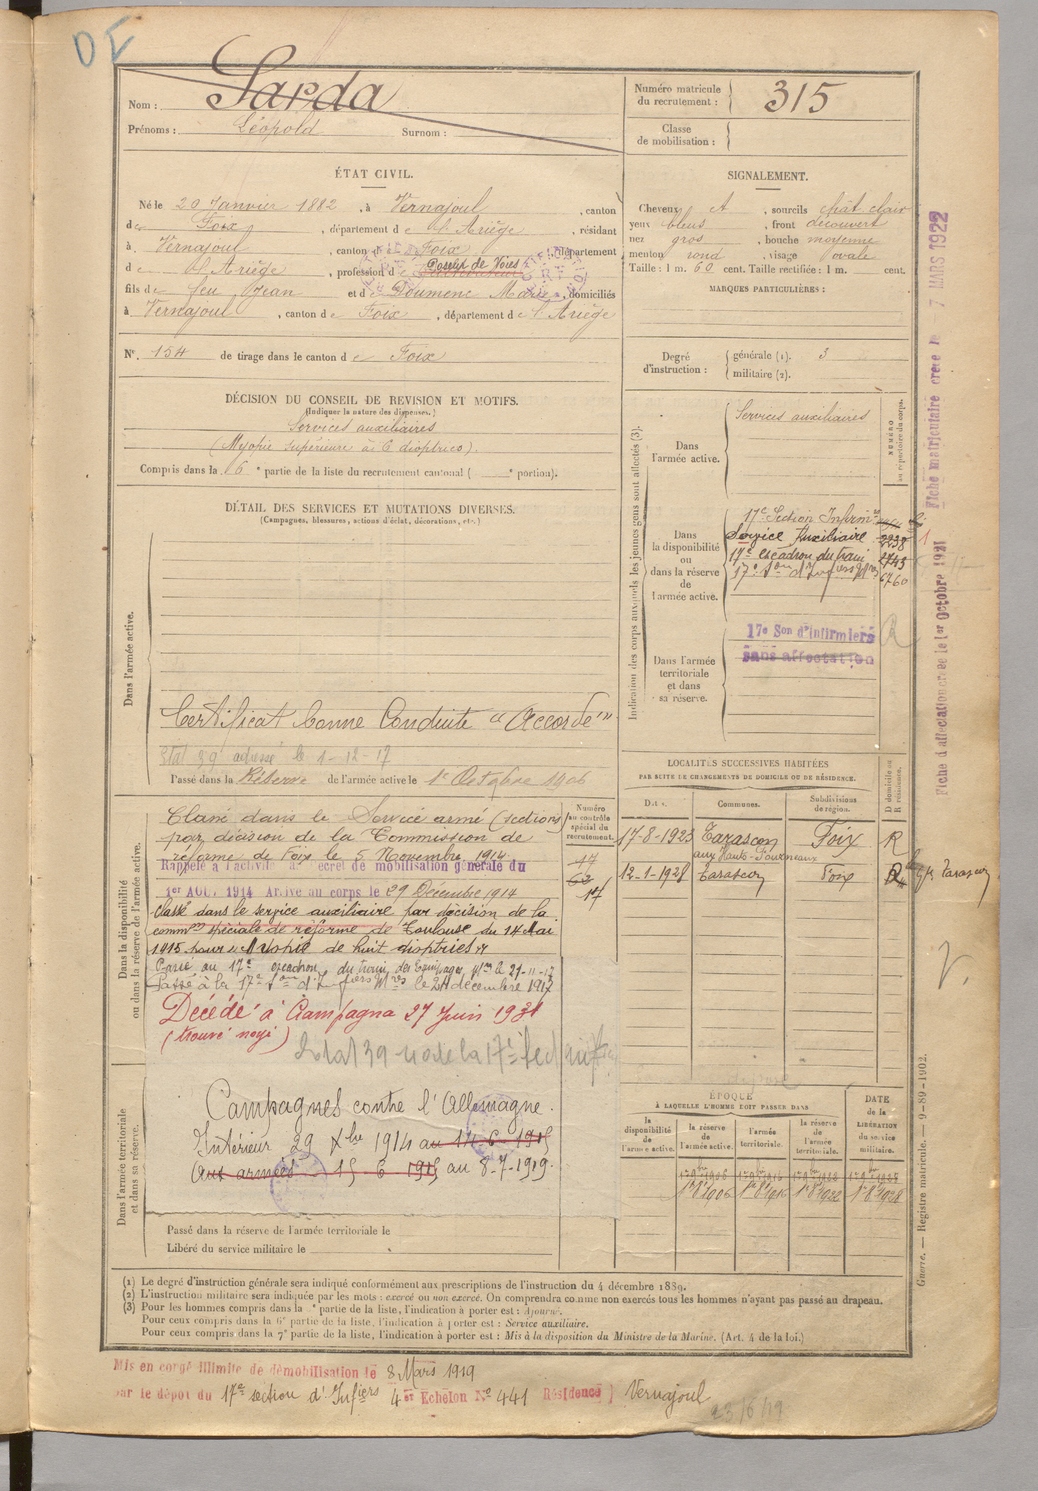 DE
Nom : Sarda
Prénoms : Léopold Surnom :
Numéro matricule du recrutement : 315
Classe de mobilisation :
ÉTAT CIVIL.
Né le 20 Janvier 1882, à Vernajoul, canton
de Foix, département de l'Ariège, résidant
à Vernajoul, canton de Foix, département
de l'Ariège, profession de Poseur de Voies
fils de feu Jean et de Doumenc Marie, domiciliés
à Vernajoul, canton de Foix, département de l'Ariège
N°. 154 de tirage dans le canton de Foix
SIGNALEMENT.
Cheveux et, sourcils chât clair
yeux bleus, front découvert
nez gros, bouche moyenne
menton rond, visage ovale
Taille : 1 m. 60 cent. Taille rectifiée : 1 m. cent.
MARQUES PARTICULIÈRES :
Degré d'instruction : générale (1). 3
militaire (2).
DÉCISION DU CONSEIL DE REVISION ET MOTIFS.
(Indiquer la nature des dispenses.)
Services auxiliaires
(Myopie supérieure à 6 dioptries)
Compris dans la 6e partie de la liste du recrutement cantonal ( e portion).
DÉTAIL DES SERVICES ET MUTATIONS DIVERSES.
(Campagnes, blessures, actions d'éclat, décorations, etc.)
Dans l'armée active.
Certificat bonne Conduite "Accordé"
Etat 39 adressé le 1-12-17
Passé dans la Réserve de l'armée active le 1er Octobre 1906
Indication des corps auxquels les jeunes gens sont affectés (3).
NUMÉRO au répertoire du corps.
Dans l'armée active.
Services auxiliaires
Dans la disponibilité ou dans la réserve de l'armée active.
17e Section Infirmres
Service Auxiliaire 2938
17e escadron du train 2743
17e Son d'Infiers Mres 6760
Dans l'armée territoriale et dans sa réserve.
17e Son d'Infirmiers
sans affectation
Fiche matriculaire créée le 7 MARS 1922
Fiche d'affectation créée le 1er Octobre 1921
Dans la disponibilité ou dans la réserve de l'armée active.
Numéro au contrôle spécial du recrutement.
17
62
17
Classé dans le Service armé (section)
par décision de la Commission de
réforme de Foix le 5 Novembre 1914
Rappelé à l'activité décret de mobilisation générale du
1er AOUT 1914 Arrivé au corps le 29 Décembre 1914
Classé dans le service auxiliaire par décision de la
common spéciale de réforme de Toulouse du 14 Mai
1915 pour "Myopie de huit dioptries"
Passé au 17e escadron du train des Equipages Mres le 21-11-17
Passé à la 17e Son d'Infiers Mres le 24 décembre 1917
Décédé à Campagna 27 Juin 1931
(trouvé noyé)
LOCALITÉS SUCCESSIVES HABITÉES
PAR SUITE DE CHANGEMENTS DE DOMICILE OU DE RÉSIDENCE.
Dates. Communes. Subdivisions de région. D domicile ou R résidence.
17-8-1923 Tarascon Foix R
aux Hauts-Fourneaux
12-1-1928 Tarascon Foix
Dans l'armée territoriale et dans sa réserve.
Campagnes contre l'Allemagne.
Intérieur 29 Xbre 1914 au 14-6-1915
Aux armées 15 6 1915 au 8-7-1919
Passé dans la réserve de l'armée territoriale le
Libéré du service militaire le
ÉPOQUE
À LAQUELLE L'HOMME DOIT PASSER DANS
la disponibilité de l'armée active.
la réserve de l'armée active.
l'armée territoriale.
la réserve de l'armée territoriale.
DATE de la LIBÉRATION du service militaire.
1er 8bre 1906 1er 8bre 1916 1er 8bre 1922 1er 8bre 1928
Guerre. — Registre matricule. — 9-89-1902.
(1) Le degré d'instruction générale sera indiqué conformément aux prescriptions de l'instruction du 4 décembre 1889.
(2) L'instruction militaire sera indiquée par les mots : exercé ou non exercé. On comprendra comme non exercés tous les hommes n'ayant pas passé au drapeau.
(3) Pour les hommes compris dans la e partie de la liste, l'indication à porter est : Ajourné.
Pour ceux compris dans la 6e partie de la liste, l'indication à porter est : Service auxiliaire.
Pour ceux compris dans la 7e partie de la liste, l'indication à porter est : Mis à la disposition du Ministre de la Marine. (Art. 4 de la loi.)
Mis en congé illimité de démobilisation le 8 Mars 1919
par le dépôt du 17e section d'Infiers 4e Echelon No 441 Résidence) Vernajoul
23/6/19